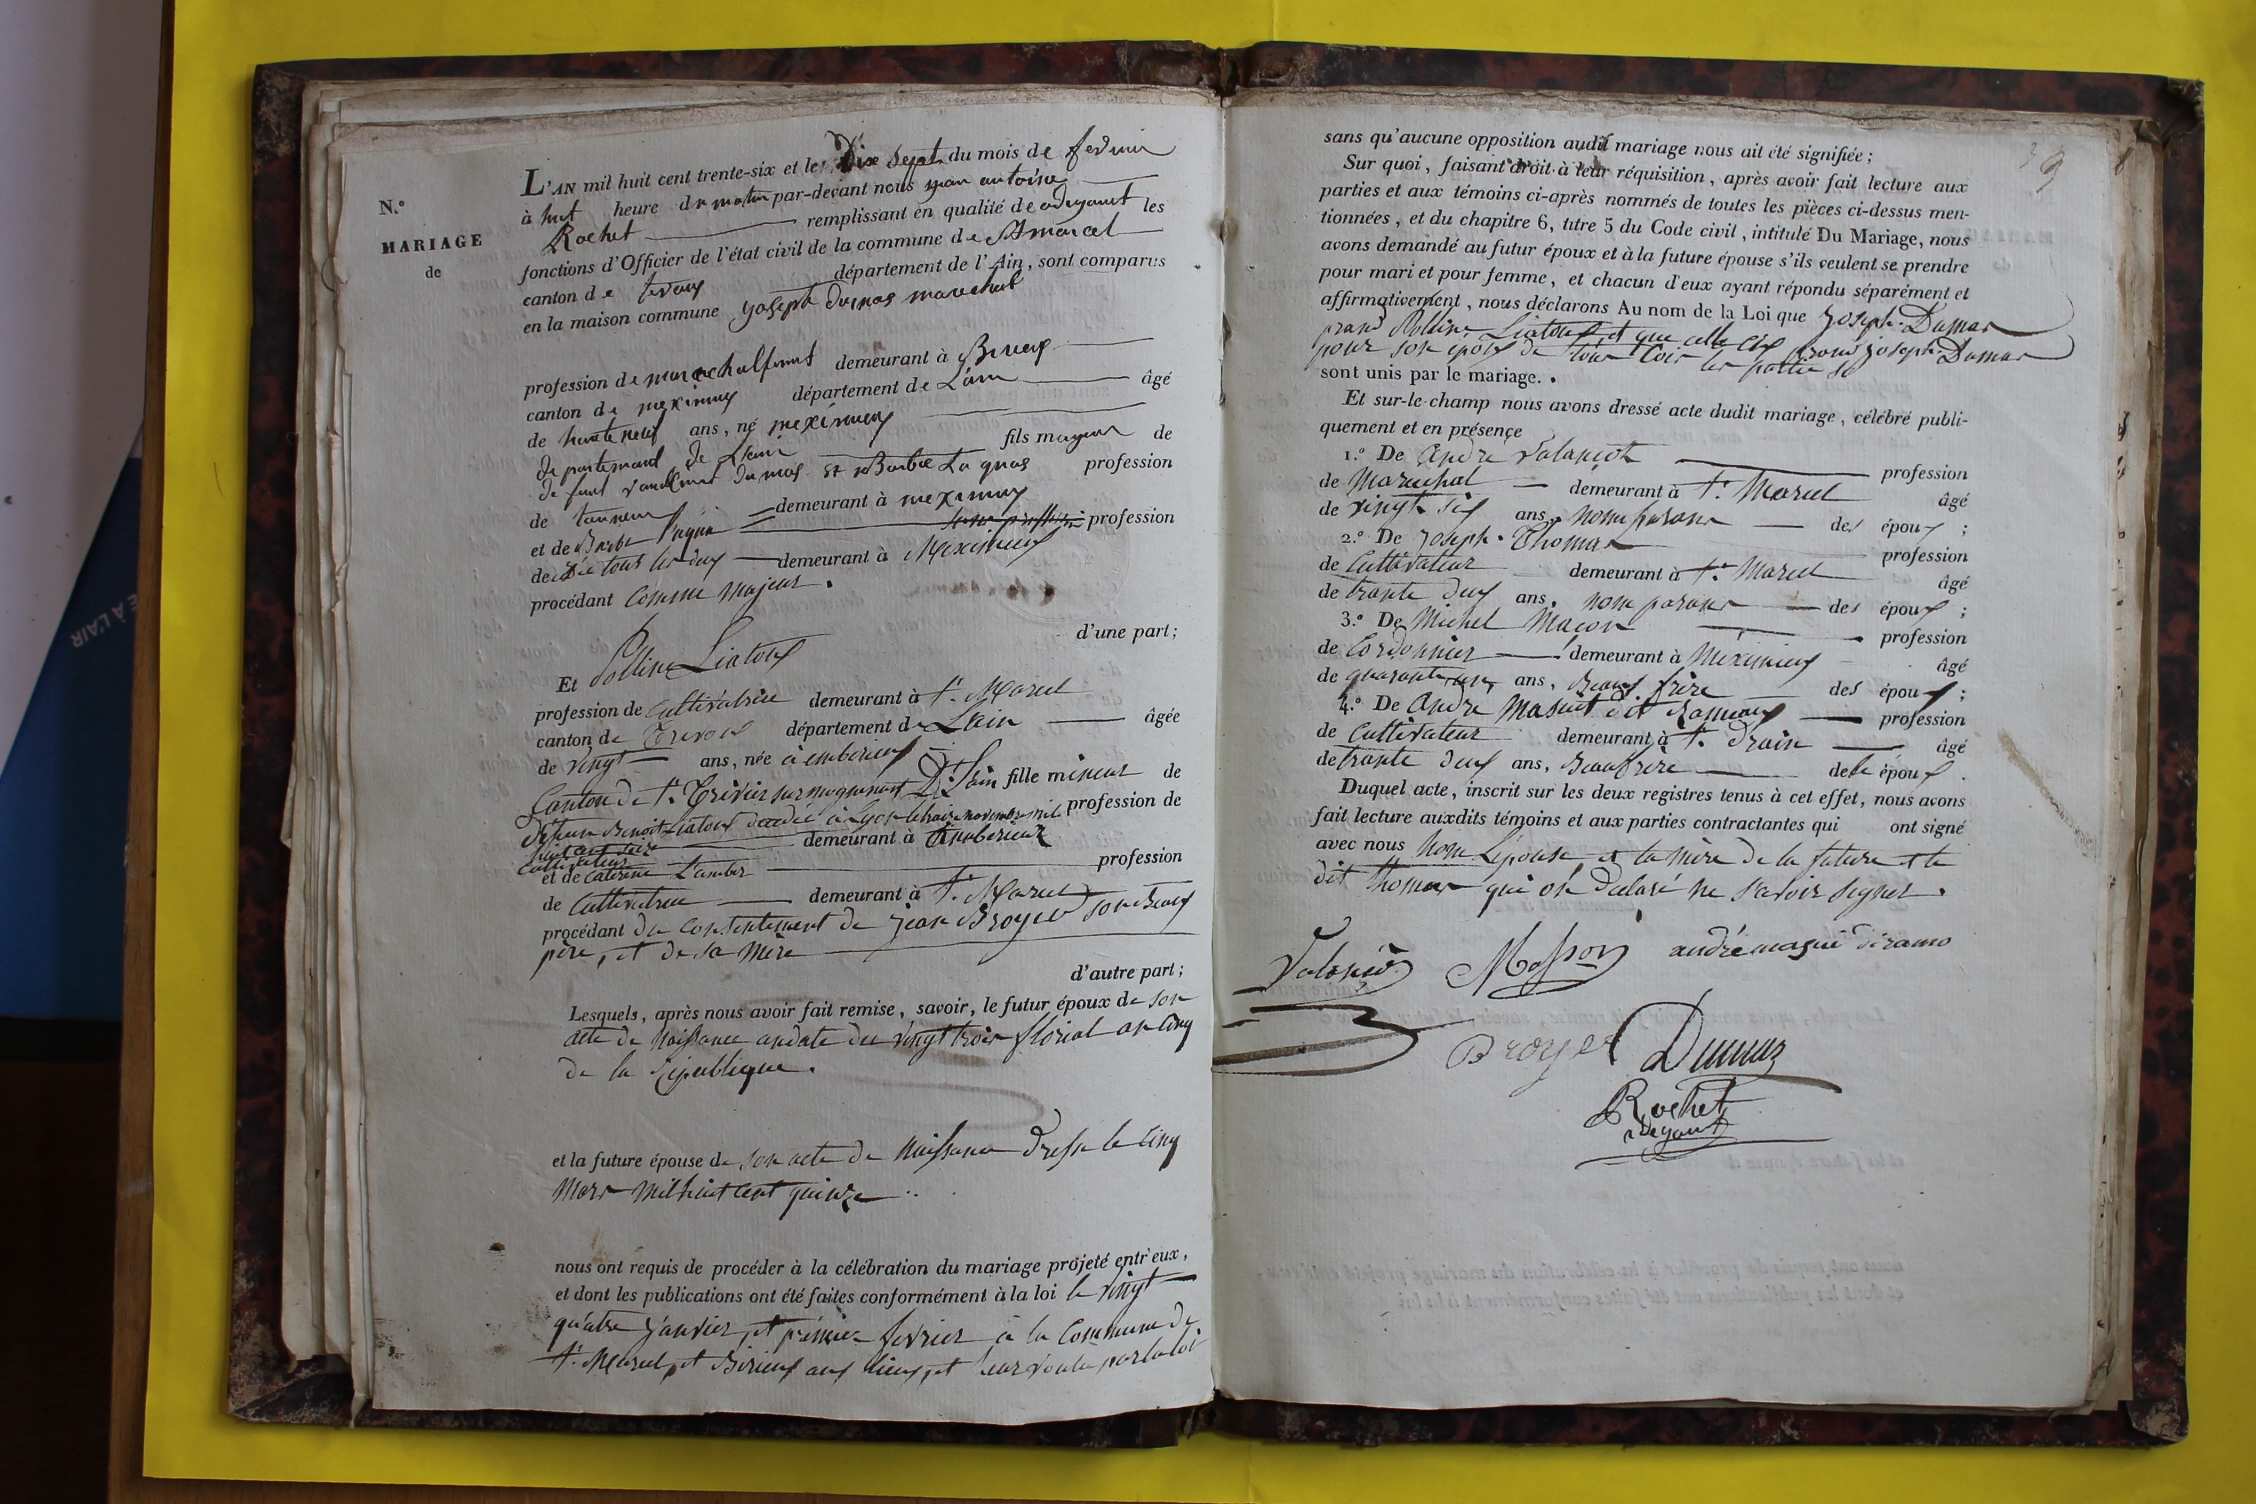 N.º
MARIAGE
de
L'AN mil huit cent trente-six et le Dix Sept du mois de fevrier
à huit heure du matin par-devant nous jean antoine
Rochet remplissant en qualité de adegount les
fonctions d'Officier de l'état civil de la commune de St marcel
canton de trevoux département de l'Ain, sont comparus
en la maison commune joseph dumas marechal
profession de marechalferant demeurant à Birieux
canton de meximieux département de L'ain âgé
de trante neuf ans, né meximieux
de partemant de L'ain fils majeur de
de funt dumas et Barbe profession
de tanneur demeurant à meximieux
et de Barbe profession
de tous les deux demeurant à Meximieux
procédant Comme Majeur.
d'une part;
Et Polline Liatoux
profession de Cultivatrice demeurant à St. Marcel
canton de Trevoux département de L'ain âgée
de vingt ans, née à emberieux
Canton de St. Trivier sur mognenant Dt. L'ain fille mineur de
défunt Benoit Liatoux décédé à Lyon le trois novembre mil profession de
huit cent seize demeurant à Amberieux
Cultivateur
et de Caterine Lambert profession
de Cultivatrice demeurant à St. Marcel
procédant du Consentement de jean Broyer son Beau
père, et de sa Mère
d'autre part;
Lesquels, après nous avoir fait remise, savoir, le futur époux de son
acte de Naissance andate du vingt trois florial an Cinq
de la République.
et la future épouse de son acte de Naissance Dressé le Cinq
Mars Mil huit Cent quinze
nous ont requis de procéder à la célébration du mariage projeté entr'eux,
et dont les publications ont été faites conformément à la loi le vingt
quatre janvier, et prémier fevrier à la Commune de
St. Marcel, et Birieux aux lieux, et heur voulu par la loi
sans qu'aucune opposition audit mariage nous ait été signifiée;
Sur quoi, faisant droit à leur réquisition, après avoir fait lecture aux
parties et aux témoins ci-après nommés de toutes les pièces ci-dessus men-
tionnées, et du chapitre 6, titre 5 du Code civil, intitulé Du Mariage, nous
avons demandé au futur époux et à la future épouse s'ils veulent se prendre
pour mari et pour femme, et chacun d'eux ayant répondu séparément et
affirmativement, nous déclarons Au nom de la Loi que Joseph Dumas
prand Polline Liatoux et que celle cix prand joseph Dumas
pour son époux de tous les partie
sont unis par le mariage.
Et sur-le-champ nous avons dressé acte dudit mariage, célébré publi-
quement et en présence
1.º De André Valancot profession
de Maréchal demeurant à St. Marcel âgé
de vingt six ans, nom parans des époux;
2.º De Joseph Thomas profession
de Cultivateur demeurant à St. Marcel âgé
de trante deux ans, nom parans des époux;
3.º De Michel Maçon profession
de Cordonnier demeurant à Méximieux âgé
de quarante un ans, Beau frère des époux;
4.º De André Masuit dit Rameaux profession
de Cultivateur demeurant à St. Drain âgé
de trante deux ans, Beau frère de le époux.
Duquel acte, inscrit sur les deux registres tenus à cet effet, nous avons
fait lecture auxdits témoins et aux parties contractantes qui ont signé
avec nous Nom L'épouse, et la Mère de la future et le
dit Thomas qui on Declaré ne savoir Signer.
Masson
andré masuit diramo
Broyer
Dumas
Rochet
adegount